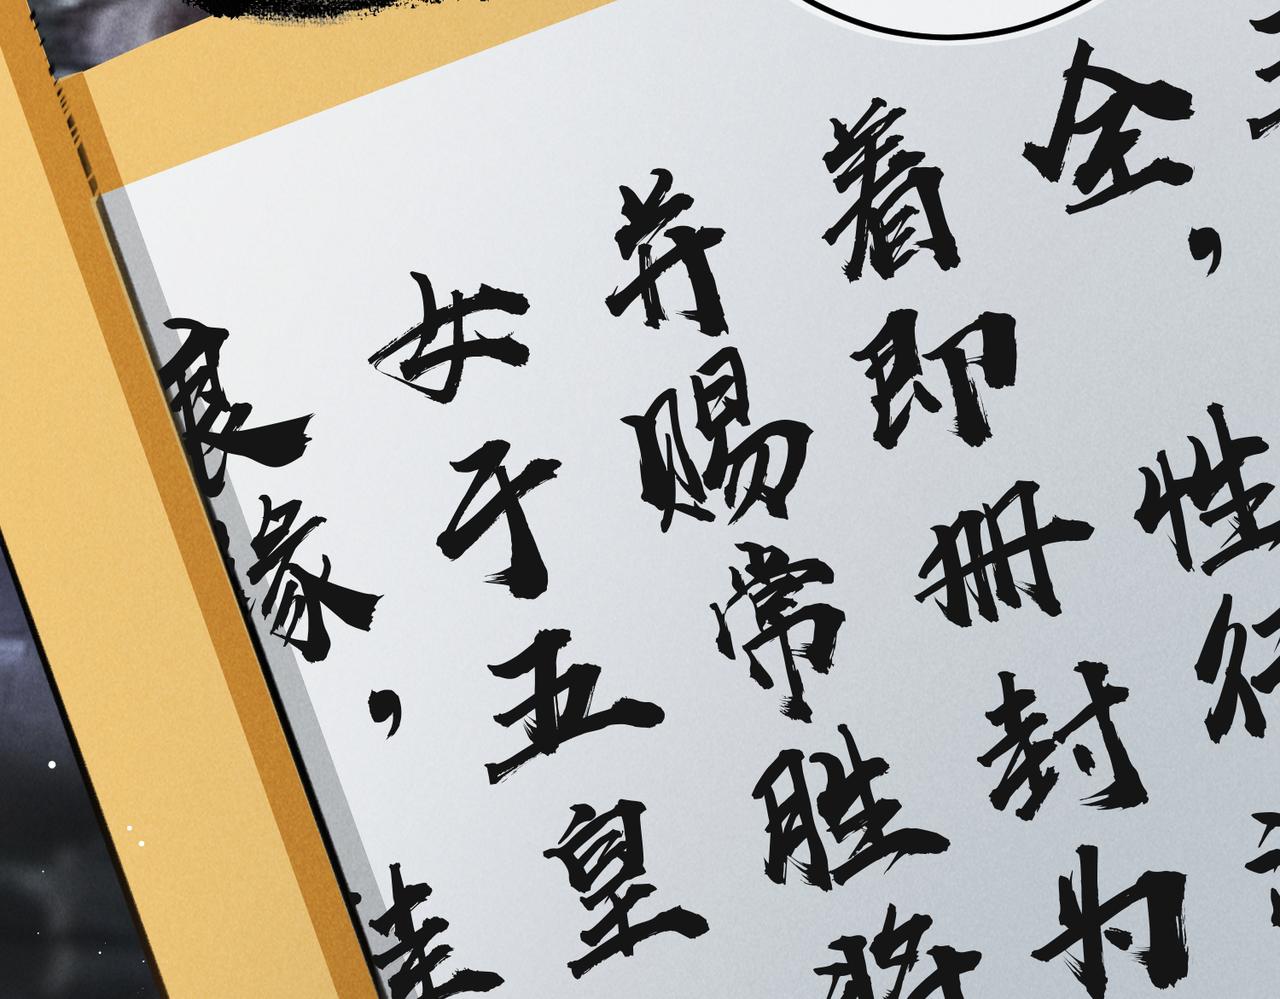 全，性行
着即册封为
并赐常胜将
女于五皇
良缘，